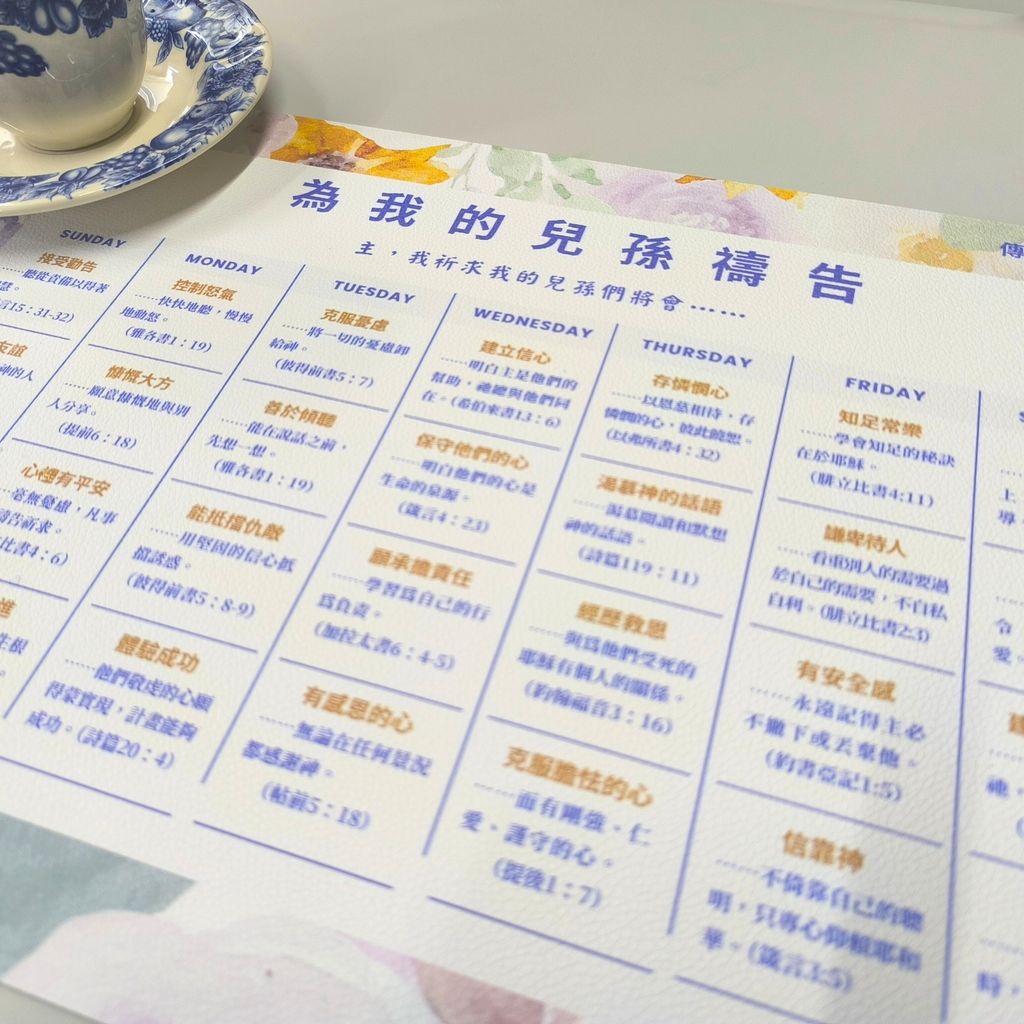 為我的兒孫禱告
傳
主，我祈求我的兒孫們將會……
SUNDAY
接受勸告
……聽從責備以得著
慧。
言15：31-32)
友誼
神的人
心裡有平安
毫無憂慮，凡事
禱告祈求。
比書4：6)
進
生根
MONDAY
控制怒氣
……快快地聽，慢慢
地動怒。
(雅各書1：19)
慷慨大方
……願意慷慨地與別
人分享。
(提前6：18)
能抵擋仇敵
……用堅固的信心抵
擋誘惑。
(彼得前書5：8-9)
體驗成功
……他們敬虔的心願
得蒙實現，計畫能夠
成功。(詩篇20：4)
TUESDAY
克服憂慮
……將一切的憂慮卸
給神。
(彼得前書5：7)
善於傾聽
……能在說話之前，
先想一想。
(雅各書1：19)
願承擔責任
……學習為自己的行
為負責。
(加拉太書6：4-5)
有感恩的心
……無論在任何景況
都感謝神。
(帖前5：18)
WEDNESDAY
建立信心
……明白主是他們的
幫助，祂總與他們同
在。(希伯來書13：6)
保守他們的心
……明白他們的心是
生命的泉源。
(箴言4：23)
經歷救恩
……與為他們受死的
耶穌有個人的關係。
(約翰福音3：16)
克服膽怯的心
……而有剛強、仁
愛、謹守的心。
(提後1：7)
THURSDAY
存憐憫心
……以恩慈相待，存
憐憫的心，彼此饒恕。
(以弗所書4：32)
渴慕神的話語
……渴慕閱讀和默想
神的話語。
(詩篇119：11)
有安全感
……永遠記得主必
不撇下或丟棄他。
(約書亞記1:5)
信靠神
……不倚靠自己的聰
明，只專心仰賴耶和
華。(箴言3:5)
FRIDAY
知足常樂
……學會知足的秘訣
在於耶穌。
(腓立比書4:11)
謙卑待人
……看重別人的需要過
於自己的需要，不自私
自利。(腓立比書2:3)
S
上
導
令
愛。
祂，
時，